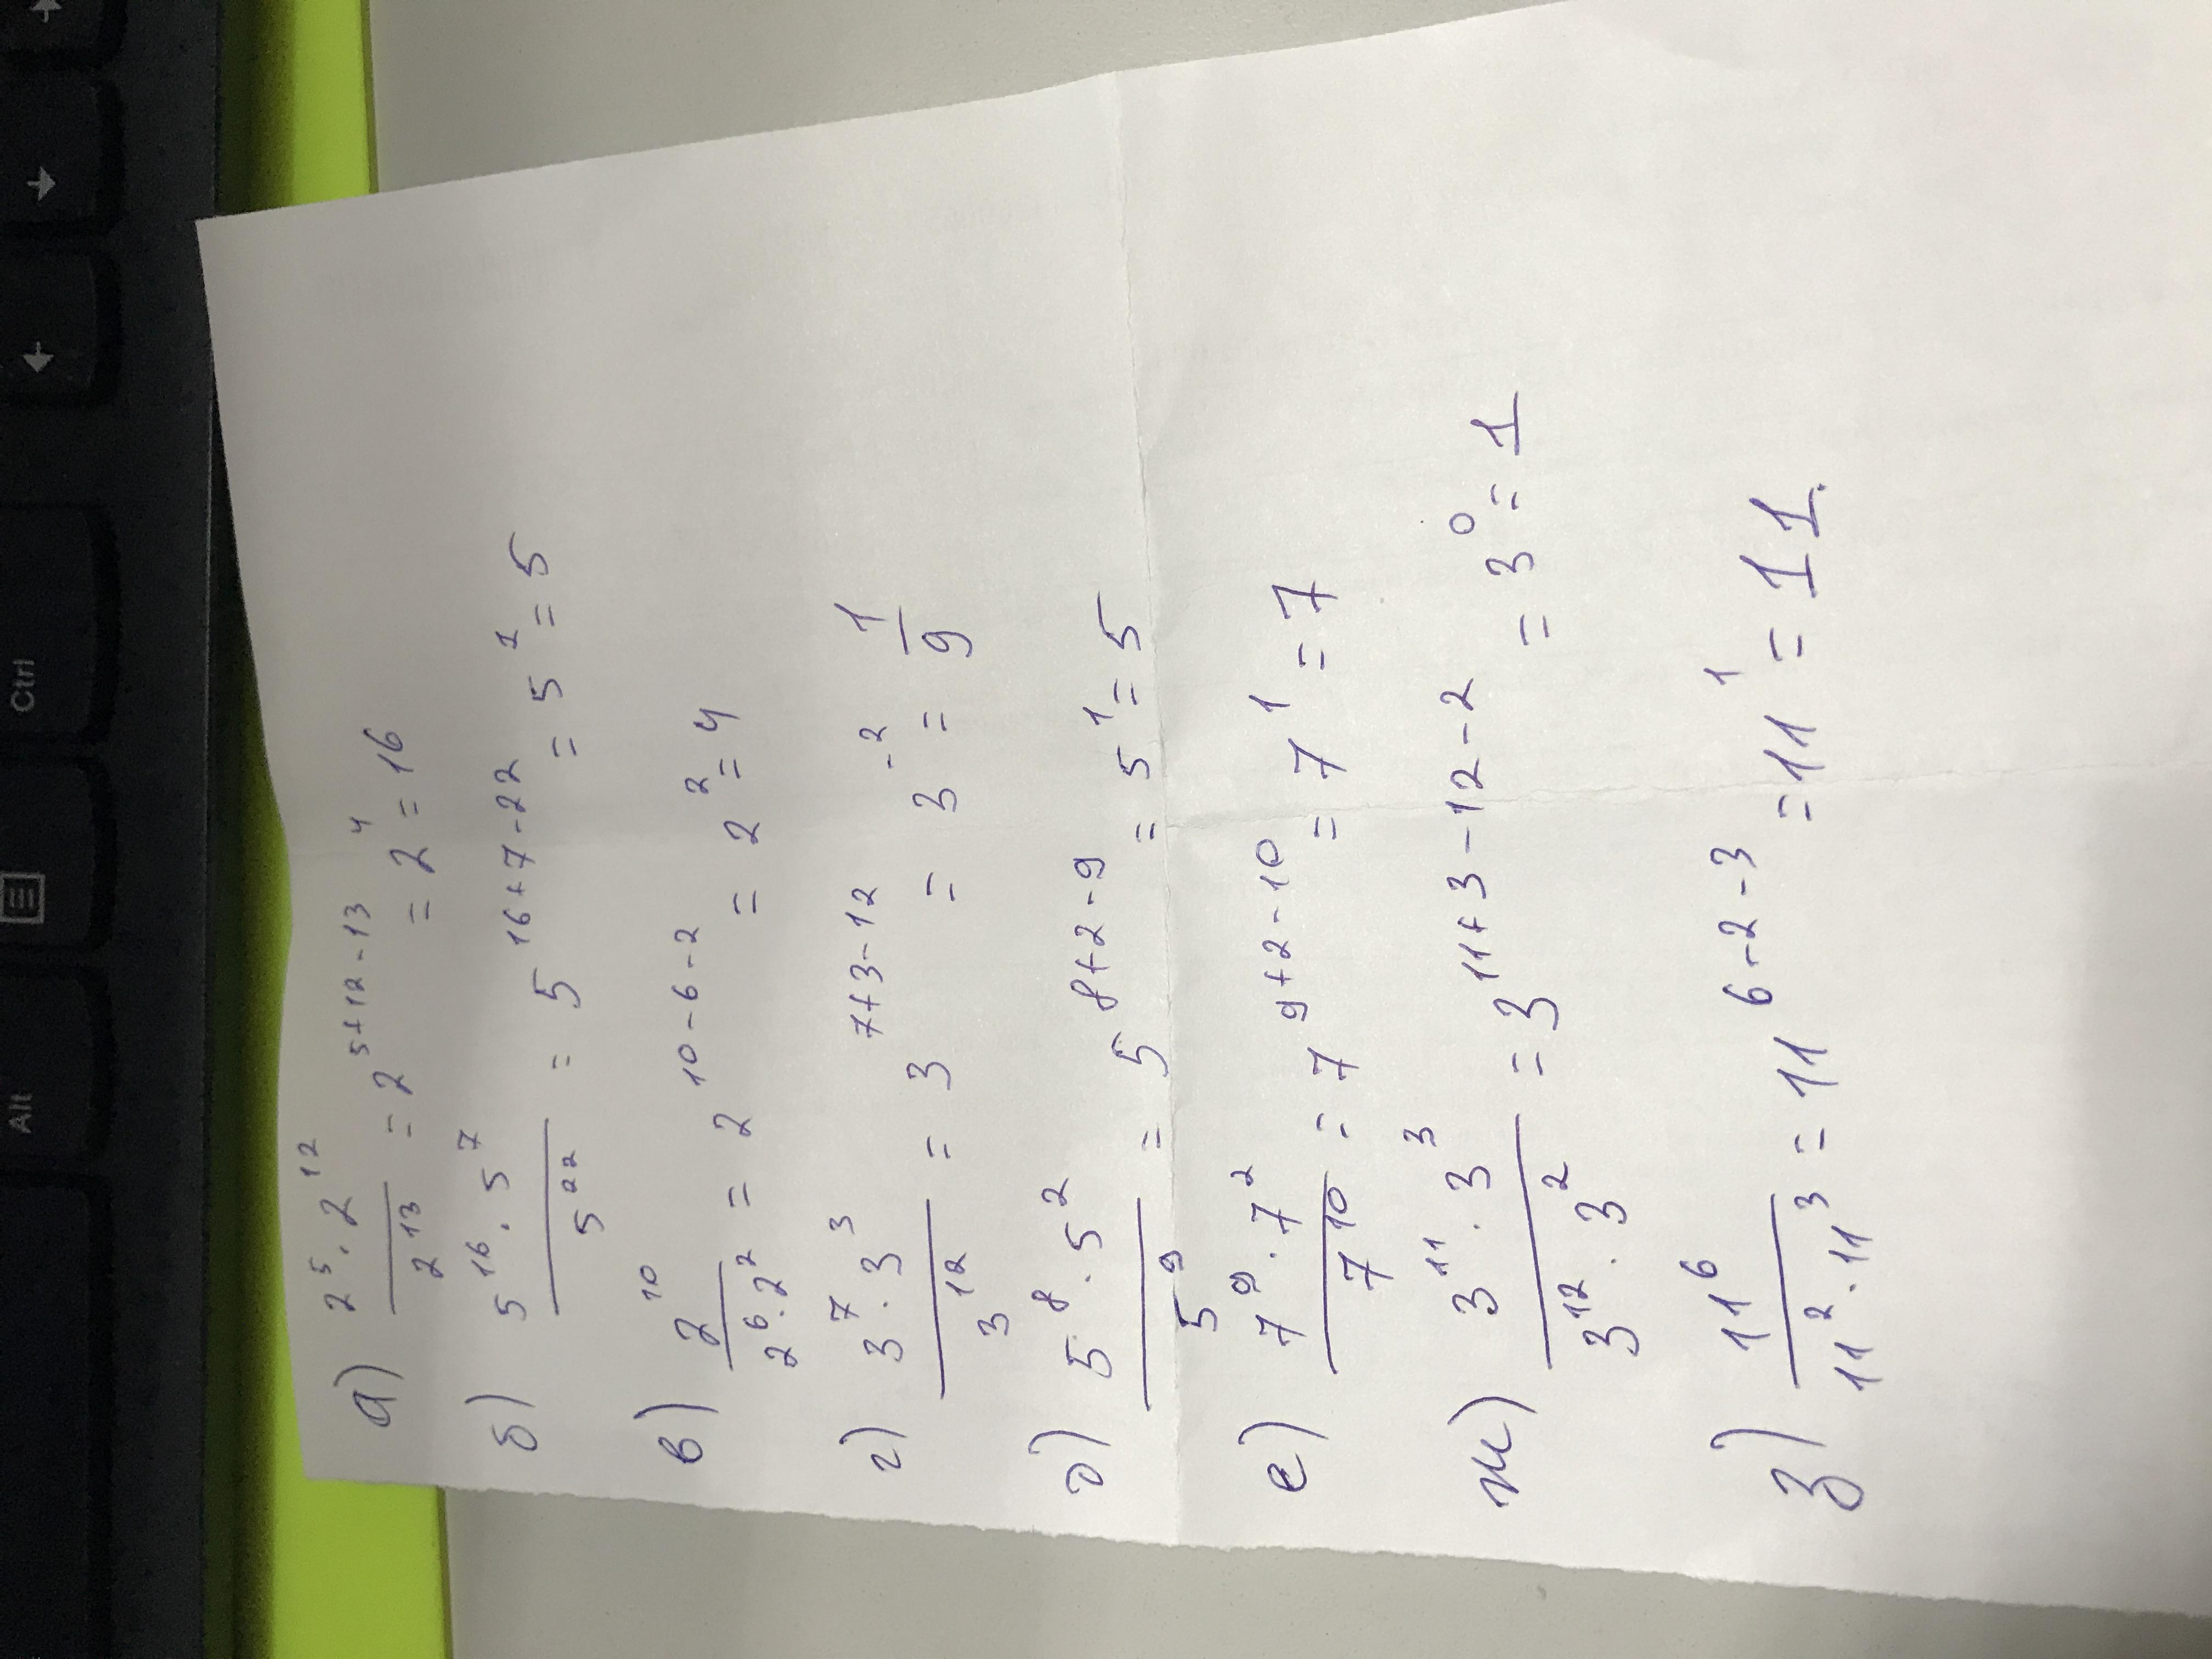 а) 2^5 · 2^12 / 2^13 = 2^5+12-13 = 2^4 = 16
б) 5^16 · 5^7 / 5^22 = 5^16+7-22 = 5^1 = 5
в) 2^10 / 2^6 · 2^2 = 2^10-6-2 = 2^2 = 4
г) 3^7 · 3^3 / 3^12 = 3^7+3-12 = 3^-2 = 1/9
д) 5^8 · 5^2 / 5^9 = 5^8+2-9 = 5^1 = 5
е) 7^9 · 7^2 / 7^10 = 7^9+2-10 = 7^1 = 7
ж) 3^11 · 3^3 / 3^12 · 3^2 = 3^11+3-12-2 = 3^0 = 1
з) 11^6 / 11^2 · 11^3 = 11^6-2-3 = 11^1 = 11.
Alt
Ctrl